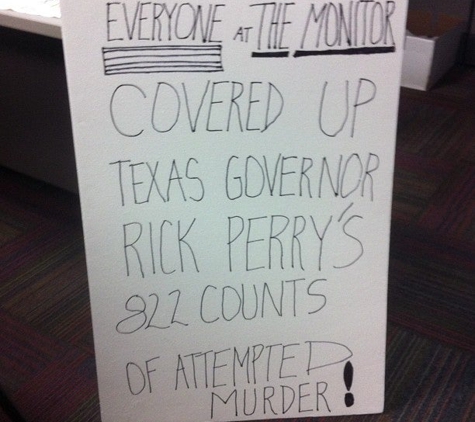 EVERYONE AT THE MONITOR
COVERED UP
TEXAS GOVERNOR
RICK PERRY'S
822 COUNTS
OF ATTEMPTED
MURDER!